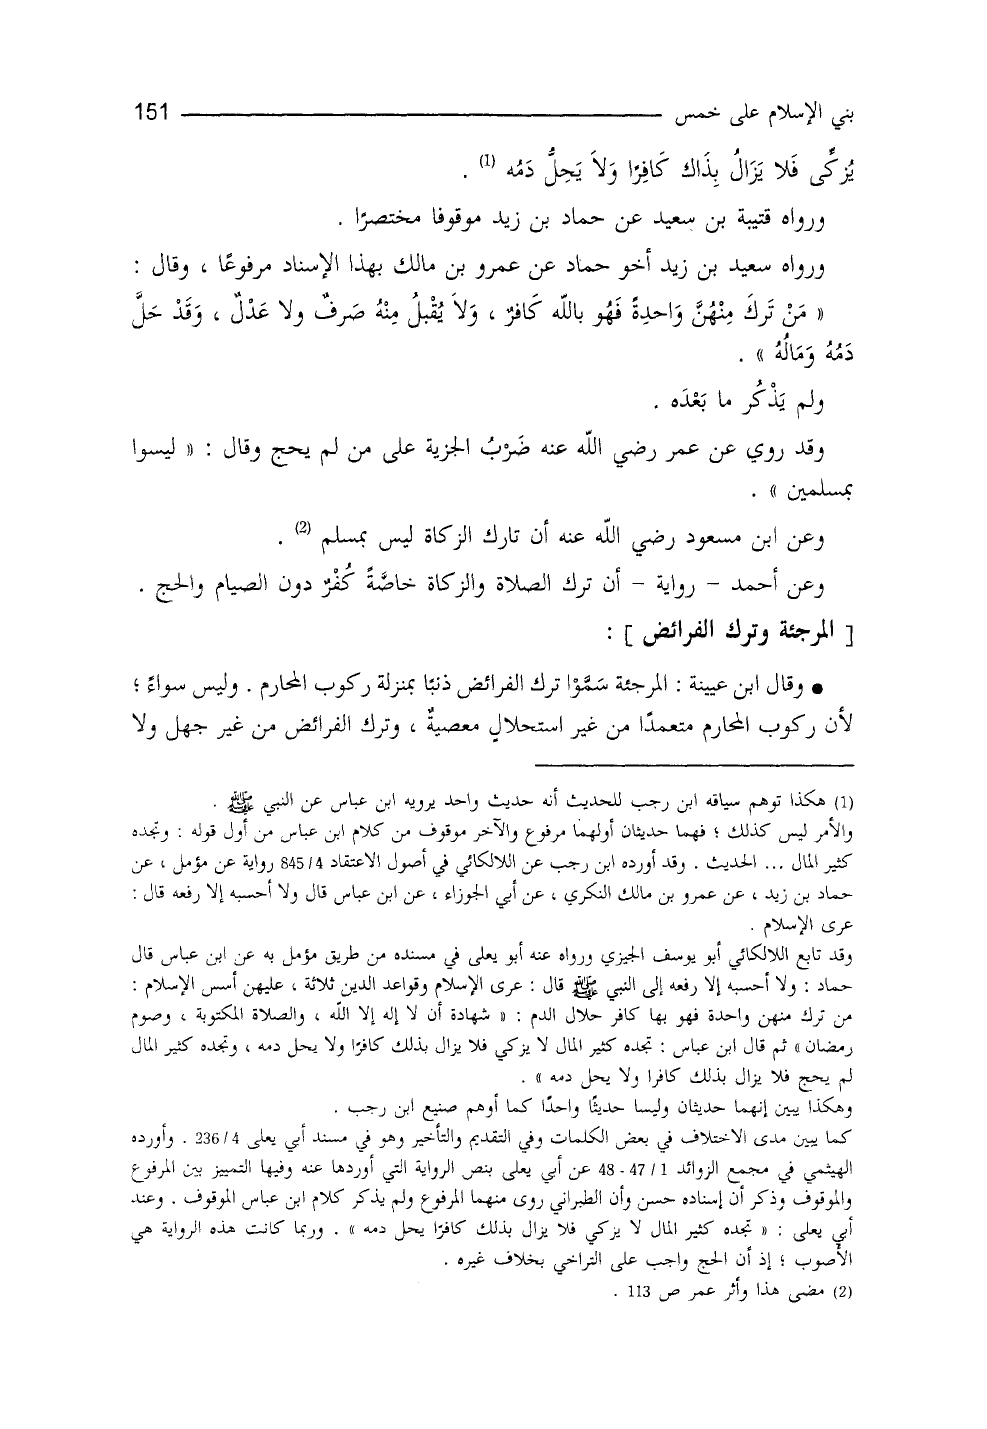 بني الإسلام على خمس 151
يُزكِّى فَلا يَزَالُ بِذَاك كَافِرًا وَلاَ يَحِلُّ دَمُه (1) .
ورواه قتيبة بن سعيد عن حماد بن زيد موقوفا مختصرًا .
ورواه سعيد بن زيد أخو حماد عن عمرو بن مالك بهذا الإسناد مرفوعًا ، وقال :
« مَنْ تَركَ مِنْهُنَّ وَاحدِةً فَهُو بالله كَافرٌ ، وَلاَ يُقْبلُ مِنْهُ صَرفٌ ولا عَدْلٌ ، وَقَدْ حَلَّ
دَمُهُ وَمَالُهُ » .
ولم يَذْكُر ما بَعْدَه .
وقد روي عن عمر رضي الله عنه ضَرْبُ الجزية على من لم يحج وقال : « ليسوا
بمسلمين » .
وعن ابن مسعود رضي الله عنه أن تارك الزكاة ليس بمسلم (2) .
وعن أحمد – رواية – أن ترك الصلاة والزكاة خاصَّةً كُفْرٌ دون الصيام والحج .
[ المرجئة وترك الفرائض ] :
● وقال ابن عيينة : المرجئة سَمَّوْا ترك الفرائض ذنبًا بمنزلة ركوب المحارم . وليس سواءً ؛
لأن ركوب المحارم متعمدًا من غير استحلالٍ معصيةٌ ، وترك الفرائض من غير جهل ولا
(1) هكذا توهم سياقه ابن رجب للحديث أنه حديث واحد يرويه ابن عباس عن النبي ﷺ .
والأمر ليس كذلك ؛ فهما حديثان أولهما مرفوع والآخر موقوف من كلام ابن عباس من أول قوله : وتجده
كثير المال ... الحديث . وقد أورده ابن رجب عن اللالكائي في أصول الاعتقاد 845/4 رواية عن مؤمل ، عن
حماد بن زيد ، عن عمرو بن مالك النكري ، عن أبي الجوزاء ، عن ابن عباس قال ولا أحسبه إلا رفعه قال :
عرى الإسلام .
وقد تابع اللالكائي أبو يوسف الجيزي ورواه عنه أبو يعلى في مسنده من طريق مؤمل به عن ابن عباس قال
حماد : ولا أحسبه إلا رفعه إلى النبي ﷺ قال : عرى الإسلام وقواعد الدين ثلاثة ، عليهن أسس الإسلام :
من ترك منهن واحدة فهو بها كافر حلال الدم : « شهادة أن لا إله إلا الله ، والصلاة المكتوبة ، وصوم
رمضان » ثم قال ابن عباس : تجده كثير المال لا يزكي فلا يزال بذلك كافرًا ولا يحل دمه ، وتجده كثير المال
لم يحج فلا يزال بذلك كافرا ولا يحل دمه » .
وهكذا يبين إنهما حديثان وليسا حديثًا واحدًا كما أوهم صنيع ابن رجب .
كما يبين مدى الاختلاف في بعض الكلمات وفي التقديم والتأخير وهو في مسند أبي يعلى 236/4 . وأورده
الهيثمي في مجمع الزوائد 1/ 47 - 48 عن أبي يعلى بنص الرواية التي أوردها عنه وفيها التمييز بين المرفوع
والموقوف وذكر أن إسناده حسن وأن الطبراني روى منهما المرفوع ولم يذكر كلام ابن عباس الموقوف . وعند
أبي يعلى : « تجده كثير المال لا يزكي فلا يزال بذلك كافرًا يحل دمه » . وربما كانت هذه الرواية هي
الأصوب ؛ إذ أن الحج واجب على التراخي بخلاف غيره .
(2) مضى هذا وأثر عمر ص 113 .